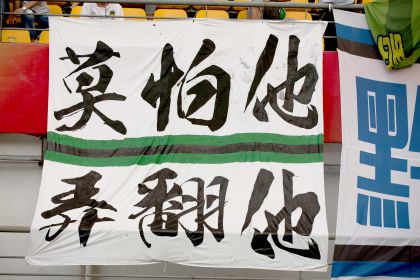 莫怕他
弄翻他